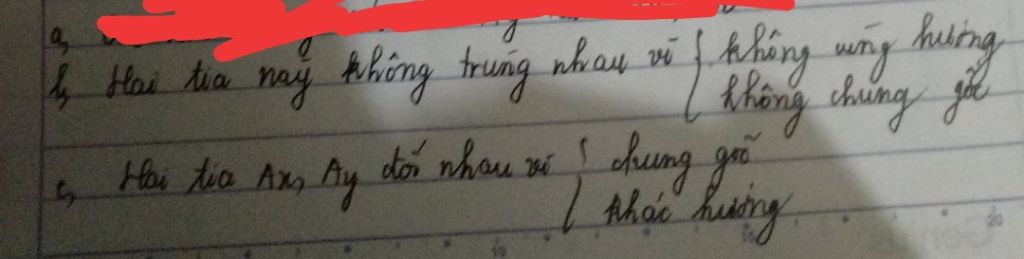 a,
b, Hai tia này không trùng nhau vì { không cùng hướng
không chung gốc
c, Hai tia Ax, Ay đối nhau vì { chung gốc
khác hướng